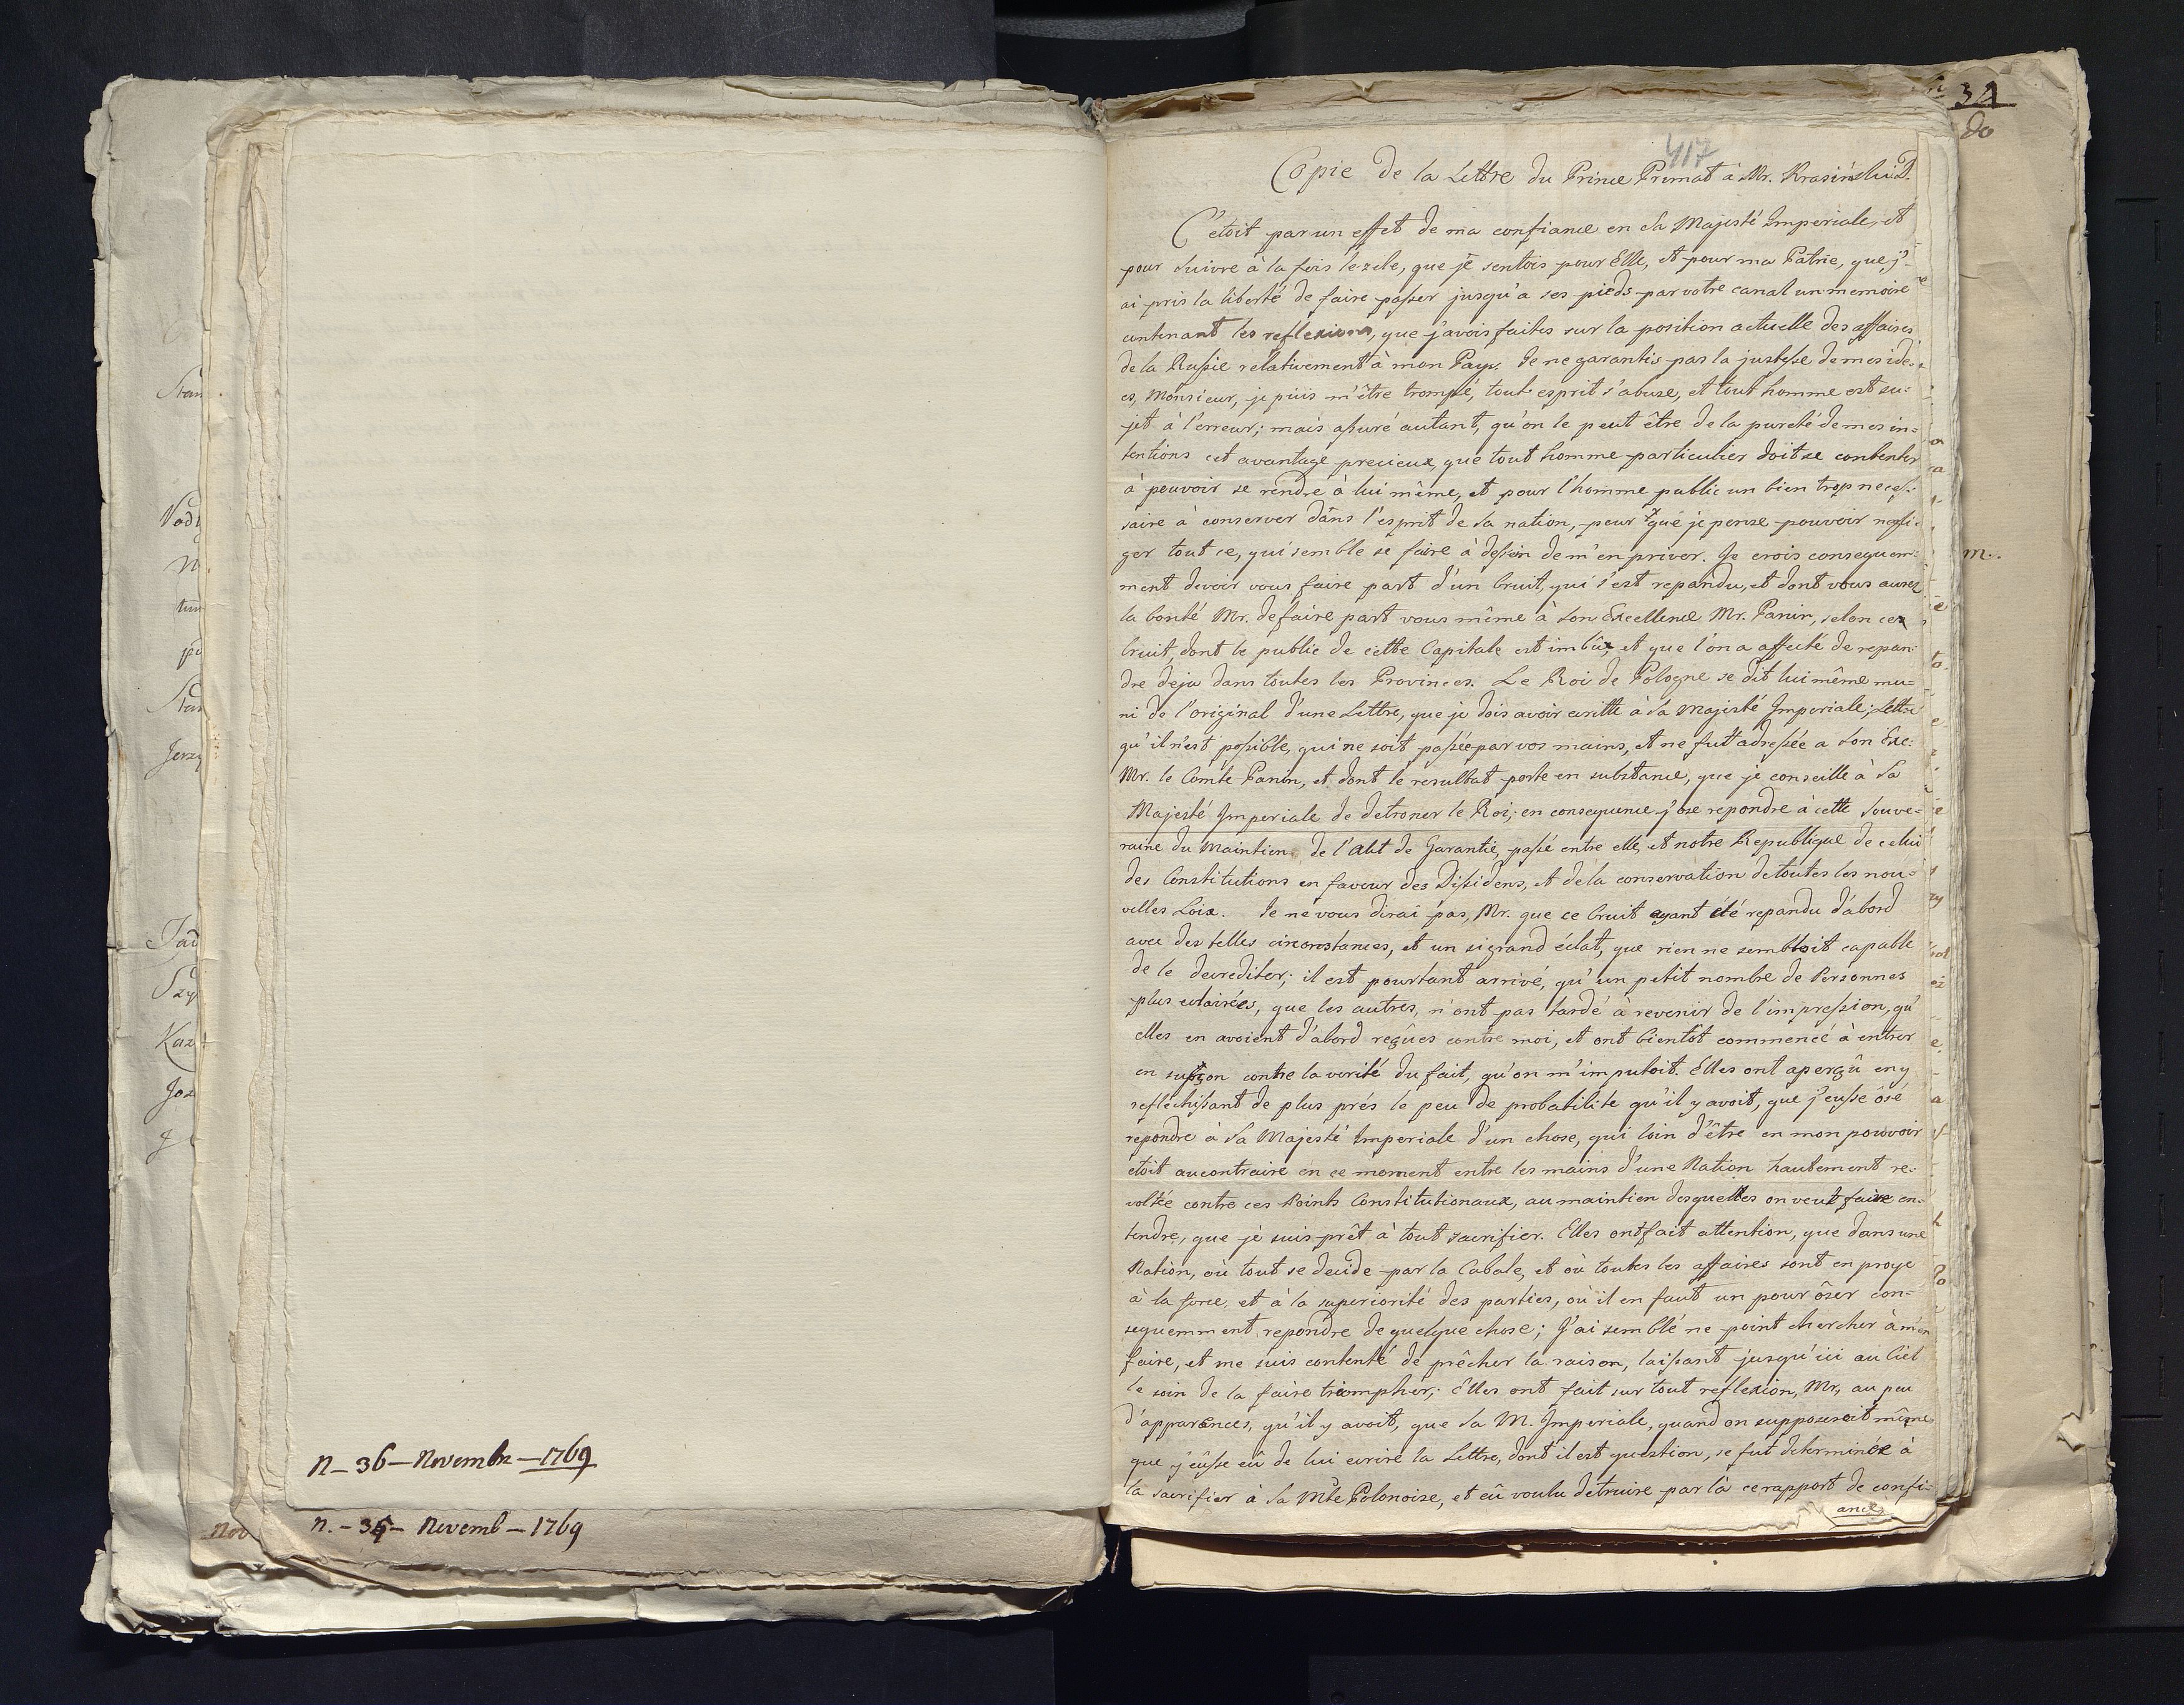 n – 36 – Novembr – 1769
n. – 35 – Novemb – 1769
Nov
417
34
do
Copie de la Lettre du Prince Primat à Mr. Krasiński
C'étoit par un effet de ma confiance en Sa Majesté Imperiale, et
pour suivre à la fois le zele, que je sentois pour Elle, et pour ma Patrie, que j'
ai pris la liberté de faire passer jusqu'a ses pieds par votre canal un memoire
contenant les reflexions, que j'avois faites sur la position actuelle des affaires
de la Russie relativement à mon Pays. Je ne garantis pas la justesse de mes idé-
es, Monsieur, je puis m'être trompé, tout esprit s'abuse, et tout homme est su-
jet à l'erreur; mais assuré autant, qu'on le peut être de la pureté de mes in=
tentions cet avantage precieux, que tout homme particulier doit se contenter
à pouvoir se rendre à lui même, et pour l'homme public un bien trop neces-
saire à conserver dans l'esprit de sa nation, pour que je pense pouvoir negli-
ger tout ce, qui semble se faire à dessein de m'en priver. Je crois consequem-
ment devoir vous faire part d'un bruit, qui s'est repandu, et dont vous aurez
la bonté Mr. de faire part vous même à Son Excellence Mr. Panin, selon ce
bruit, dont le public de cette Capitale est imbû, et que l'on a affecté de repan-
dre deja dans toutes les Provinces. Le Roi de Pologne se dit lui même mu-
ni de l'original d'une Lettre, que je dois avoir ecritte à Sa Majesté Imperiale; Lettre
qu'il n'est possible, qui ne soit passée par vos mains, et ne fut adressée a Son Exc:
Mr. le Comte Panin, et dont le resultat porte en substance, que je conseille à Sa
Majesté Imperiale de detroner le Roi; en consequence j'ose repondre à cette Souve=
raine du Maintien de l'Akt de Garantie, passé entre elle, et notre Republique de celui
des Constitutions en faveur des Dissidens, et de la conservation de toutes les nou-
velles Loix. Je ne vous dirai pas, Mr. que ce bruit ayant été repandu d'abord
avec des telles circonstances, et un si grand éclat, que rien ne sembloit capable
de le decrediter; il est pourtant arrivé, qu'un petit nombre de Personnes
plus eclairées, que les autres, n'ont pas tardé à revenir de l'impression, qu'
elles en avoient d'abord reçûes contre moi, et ont bientôt commencé à entrer
en supçon contre la verité du fait, qu'on m'imputoit. Elles ont aperçû en y
reflechissant de plus prés le peu de probabilité qu'il y avoit, que j'eusse ôsé
repondre à Sa Majesté Imperiale d'un chose, qui loin d'être en mon pouvoir
etoit aucontraire en ce moment entre les mains d'une Nation hautement re-
voltée contre ces Points Constitutionaux, au maintien desquelles on veut faire en-
tendre, que je suis prêt à tout sacrifier. Elles ont fait attention, que dans une
Nation, où tout se decide par la Cabale, et où toutes les affaires sont en proye
à la force, et à la superiorité des parties, où il en faut un pour ôser con=
sequemment repondre de quelque chose; J'ai semblé ne point chercher à m'en
faire, et me suis contenté de prêcher la raison, laissant jusqu'ici au Ciel
le soin de la faire triompher; Elles ont fait sur tout reflexion, Mr, au peu
d'apparences, qu'il y avoit, que Sa M. Imperiale, quand on supposeroit même
que j'eusse eû de lui ecrire la Lettre, dont il est question, se fut determinée à
la sacrifier à Sa Mté Polonoise, et eû voulu detruire par là ce rapport de confi-
ance